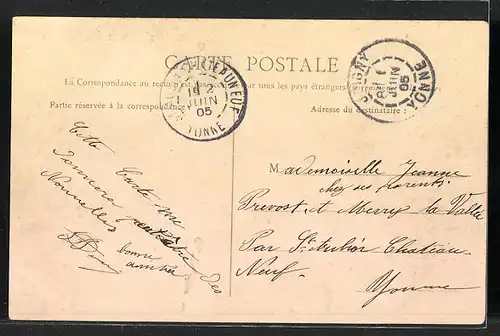 CARTE POSTALE
La Correspondance au recto par tous les pays étrangers
Partie réservée à la correspondance
Adresse du destinataire
JUIN
05
YONNE
JUIN
05
YONNE
Cette Carte me
donnera peut être des
Nouvelles
bonne
amitié
Mademoiselle Jeanne
chez ses parents
Prevost, et Merry la Vallée
Par St Aubin Chateau-
Neuf
Yonne